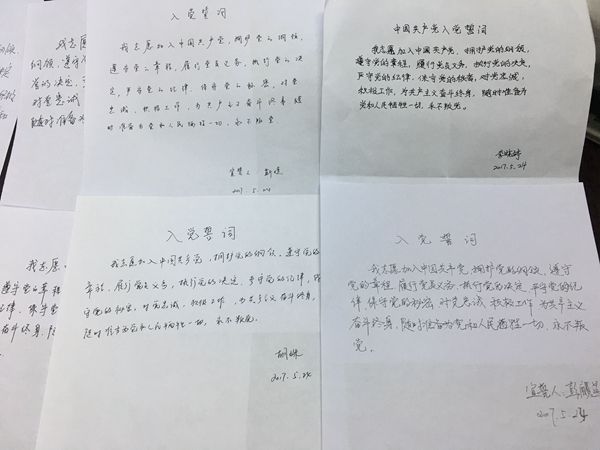 我志愿
纲领，遵守
密的决定，
对党忠诚
随时准备
入党誓词
我志愿加入中国共产党，拥护党的纲领，
遵守党的章程，履行党员义务，执行党的决
定，严守党的纪律，保守党的秘密，对党
忠诚，积极工作，为共产主义奋斗终身，随
时准备为党和人民牺牲一切，永不叛党。
宣誓人：
2017.5.24
中国共产党入党誓词
我志愿加入中国共产党，拥护党的纲领，
遵守党的章程，履行党员义务，执行党的决定，
严守党的纪律，保守党的秘密，对党忠诚，
积极工作，为共产主义奋斗终身，随时准备为
党和人民牺牲一切，永不叛党。
2017.5.24
我志愿
遵守党的章程
律，保守党
奋斗终身，
入党誓词
我志愿加入中国共产党，拥护党的纲领，遵守党的
章程，履行党员义务，执行党的决定，严守党的纪律，保
守党的秘密，对党忠诚，积极工作，为共产主义奋斗终身，
随时准备为党和人民牺牲一切，永不叛党。
2017.5.24
入党誓词
我志愿加入中国共产党，拥护党的纲领，遵守
党的章程，履行党员义务，执行党的决定，严守党的纪
律，保守党的秘密，对党忠诚，积极工作，为共产主义
奋斗终身，随时准备为党和人民牺牲一切，永不叛
党。
宣誓人：
2017.5.24